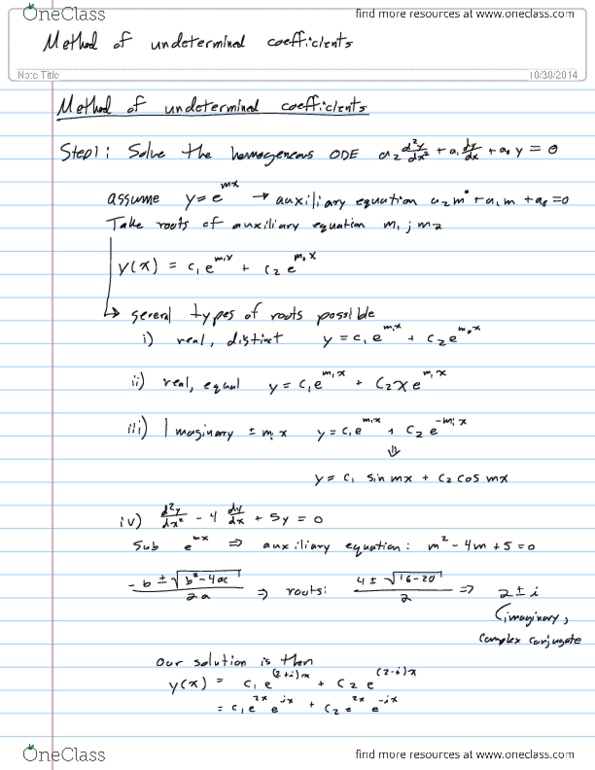 OneClass find more resources at www.oneclass.com
Method of undetermined coefficients
Note Title 10/30/2014
Method of undetermined coefficients
Step 1: Solve the homogeneous ODE a₂ d²y/dx² + a₁ dy/dx + a₀ y = 0
assume y = e^mx → auxiliary equation a₂m² + a₁m + a₀ = 0
Take roots of auxiliary equation m₁ ; m₂
y(x) = c₁e^m₁x + c₂e^m₂x
↳ several types of roots possible
i) real, distinct y = c₁e^m₁x + c₂e^m₂x
ii) real, equal y = c₁e^m₁x + c₂xe^m₁x
iii) Imaginary ± m₁x y = c₁e^m₁x + c₂e^-m₁x
⇓
y = c₁ sin mx + c₂ cos mx
iv) d²y/dx² - 4 dy/dx + 5y = 0
Sub e^mx ⇒ auxiliary equation: m² - 4m + 5 = 0
(-b ± √(b² - 4ac))/2a ⇒ roots: (4 ± √(16 - 20))/2 ⇒ 2 ± i
(imaginary,
complex conjugate
Our solution is then
y(x) = c₁e^(2+i)x + c₂e^(2-i)x
= c₁e^2x e^ix + c₂e^2x e^-ix
OneClass find more resources at www.oneclass.com